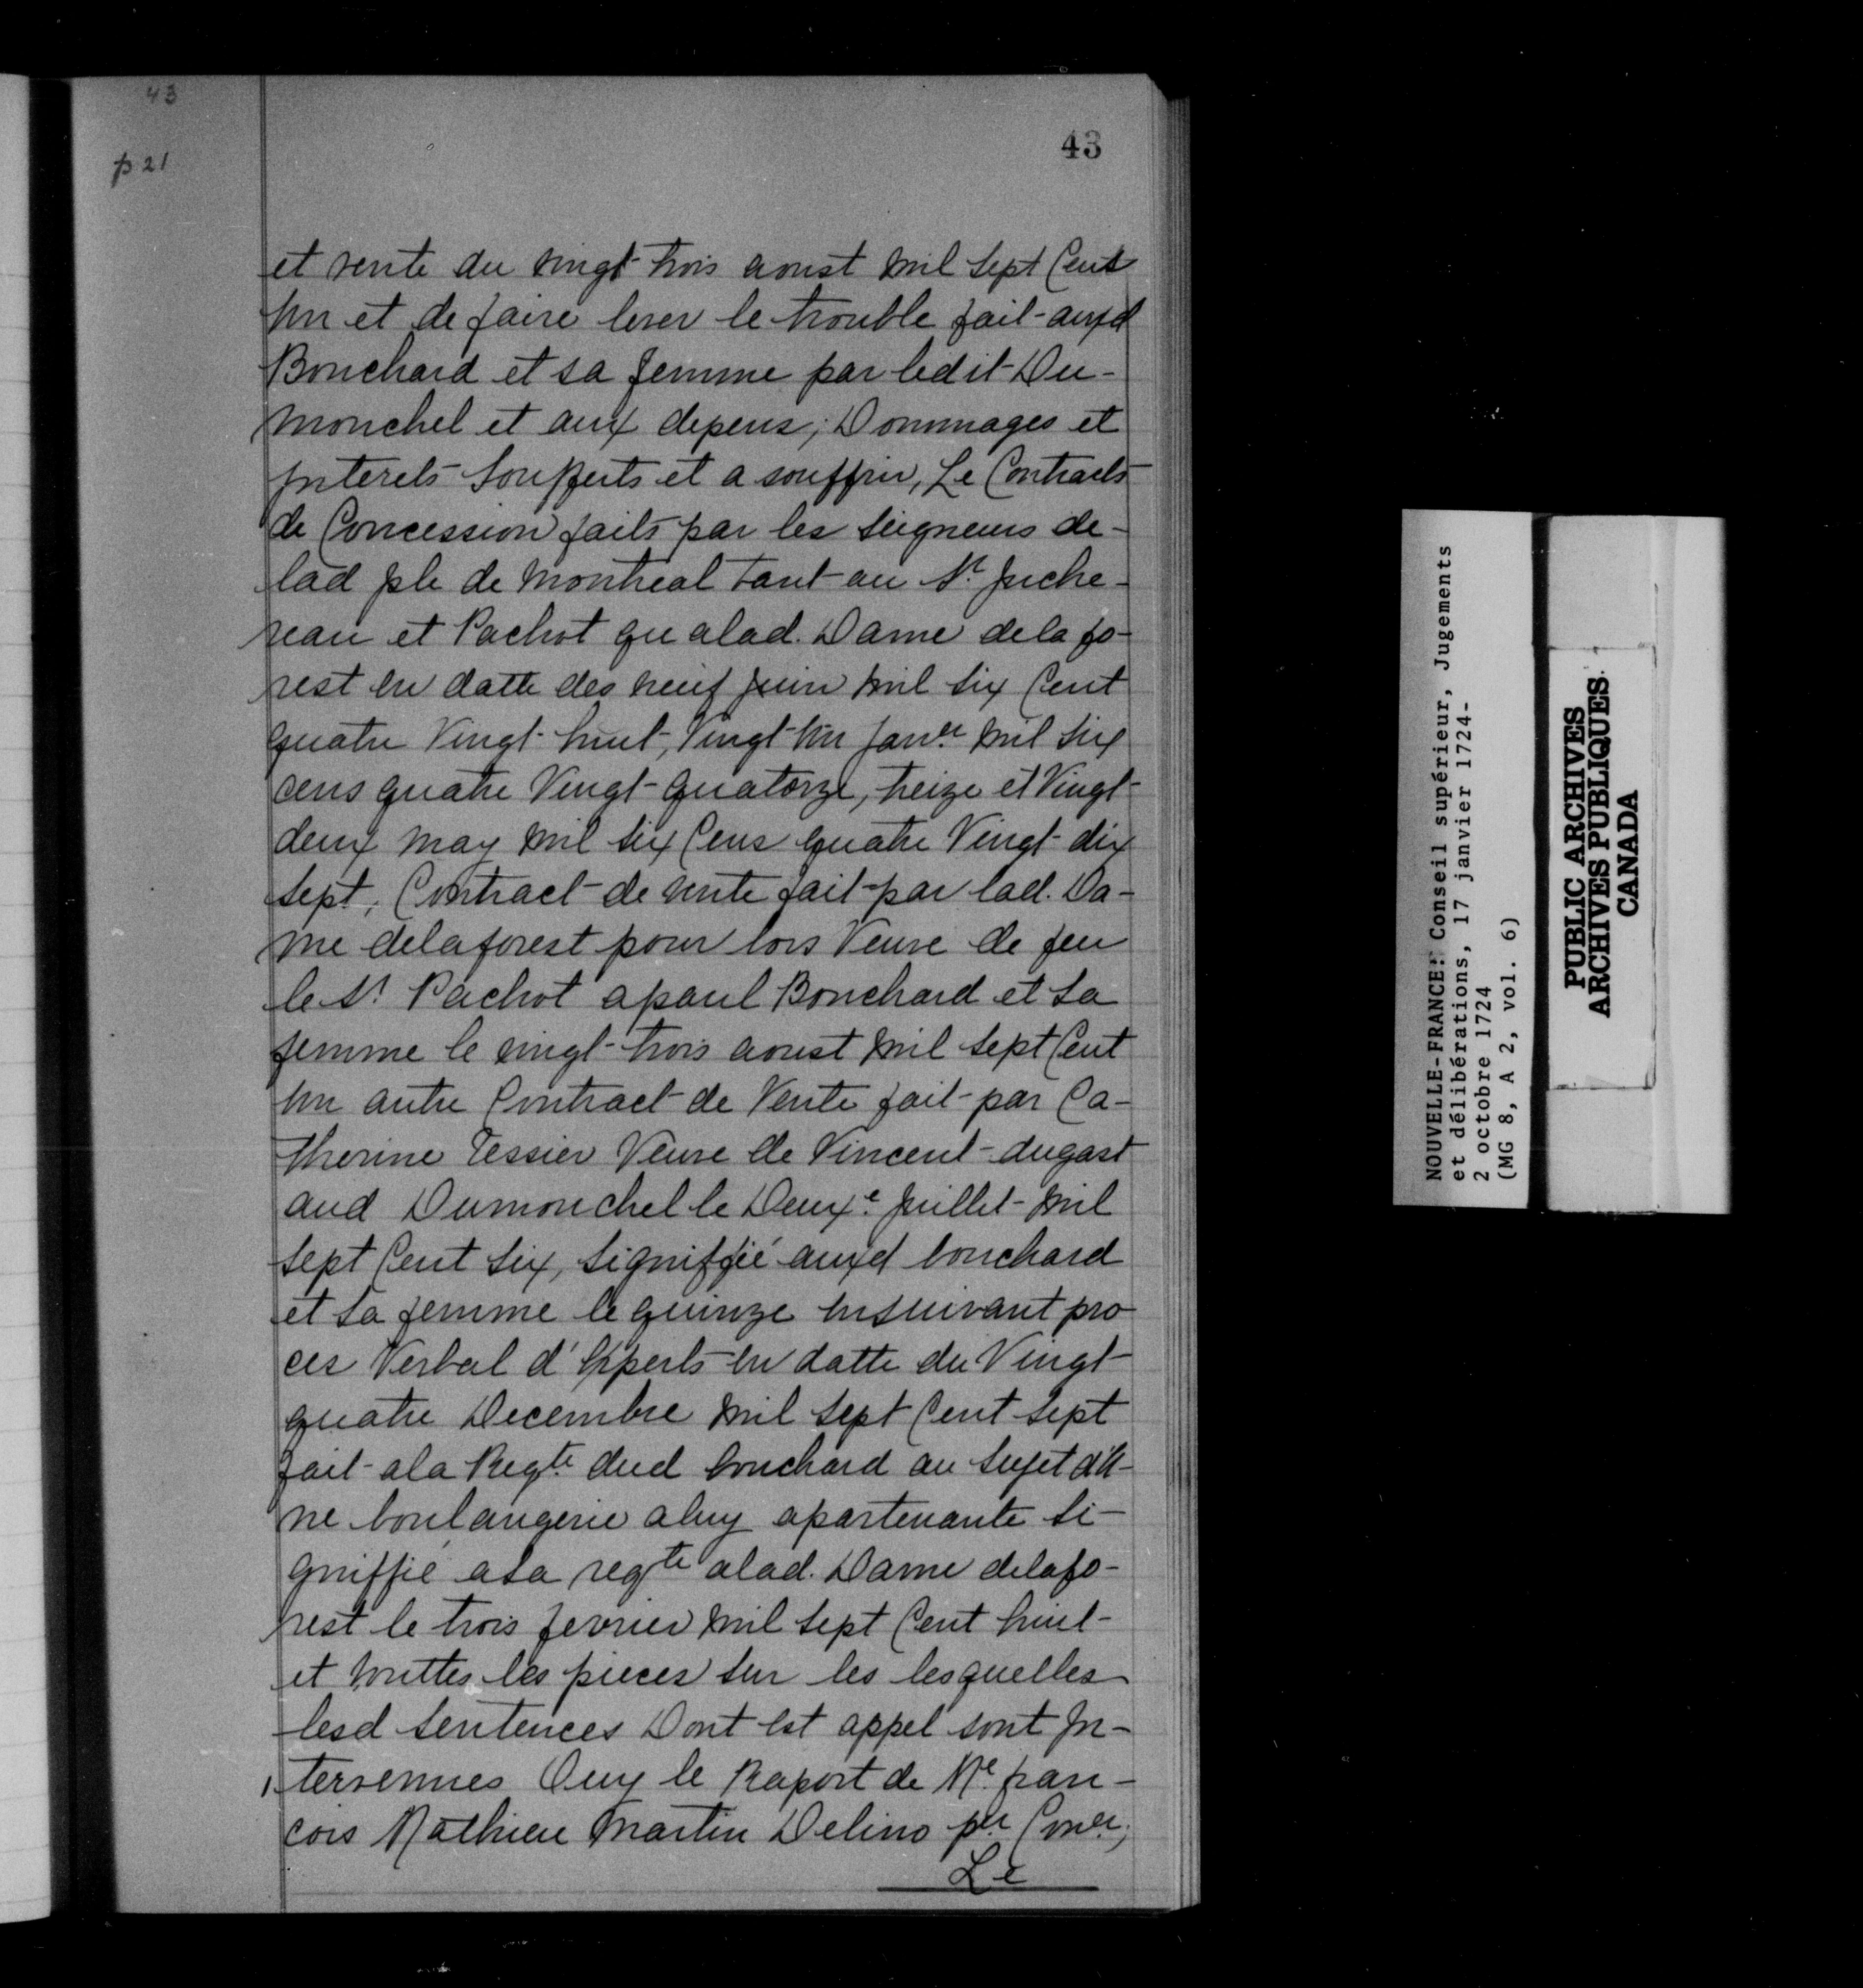 43
p 21
43
et vente du vingt-trois aoust mil sept Cent
un et de faire lever le trouble fait auxd
Bouchard et sa femme par ledit Du-
mouchel et aux depens, Dommages et
Interets Soufferts et a souffrir, Le Contracts
de Concession faits par les Seigneurs de-
lad Isle de Montreal tant au Sr. Juche-
reau et Pachot qu alad. Dame dela fo-
rest en datte des neuf juin mil six Cent
quatre Vingt-huit, Vingt-un Janver mil six
cens quatre Vingt-quatorze, treize et Vingt-
deux may mil six Cens quatre Vingt-dix
sept, Contract de vente fait par lad. Da-
me delaforest pour lors Veuve de feu
le Sr Pachot apaul Bouchard et sa
femme le vingt-trois aoust mil sept Cent
un autre Contract de Vente fait par Ca-
therine Tessier Veuve de Vincent dugast
aud Dumouchel le Deuxe. juillet mil
sept Cent six, signiffié auxd bouchard
et sa femme le quinze ensuivant pro
ces Verbal d'Experts en datte du Vingt
quatre Decembre mil sept Cent sept
fait ala Reqte dud bouchard au sujet d'u-
ne boulangerie aluy apartenante si-
gniffié asa reqte alad. Dame delafo-
rest le trois fevrier mil sept Cent huit
et touttes les pieces sur les lesquelles
lesd sentences Dont est appel sont In-
tervenues Ouy le Raport de Me. fran-
cois Mathieu Martin Delino per Conser,
Le
NOUVELLE-FRANCE: Conseil supérieur, Jugements
et délibérations, 17 janvier 1724-
2 octobre 1724
(MG 8, A 2, vol. 6)
PUBLIC ARCHIVES
ARCHIVES PUBLIQUES
CANADA